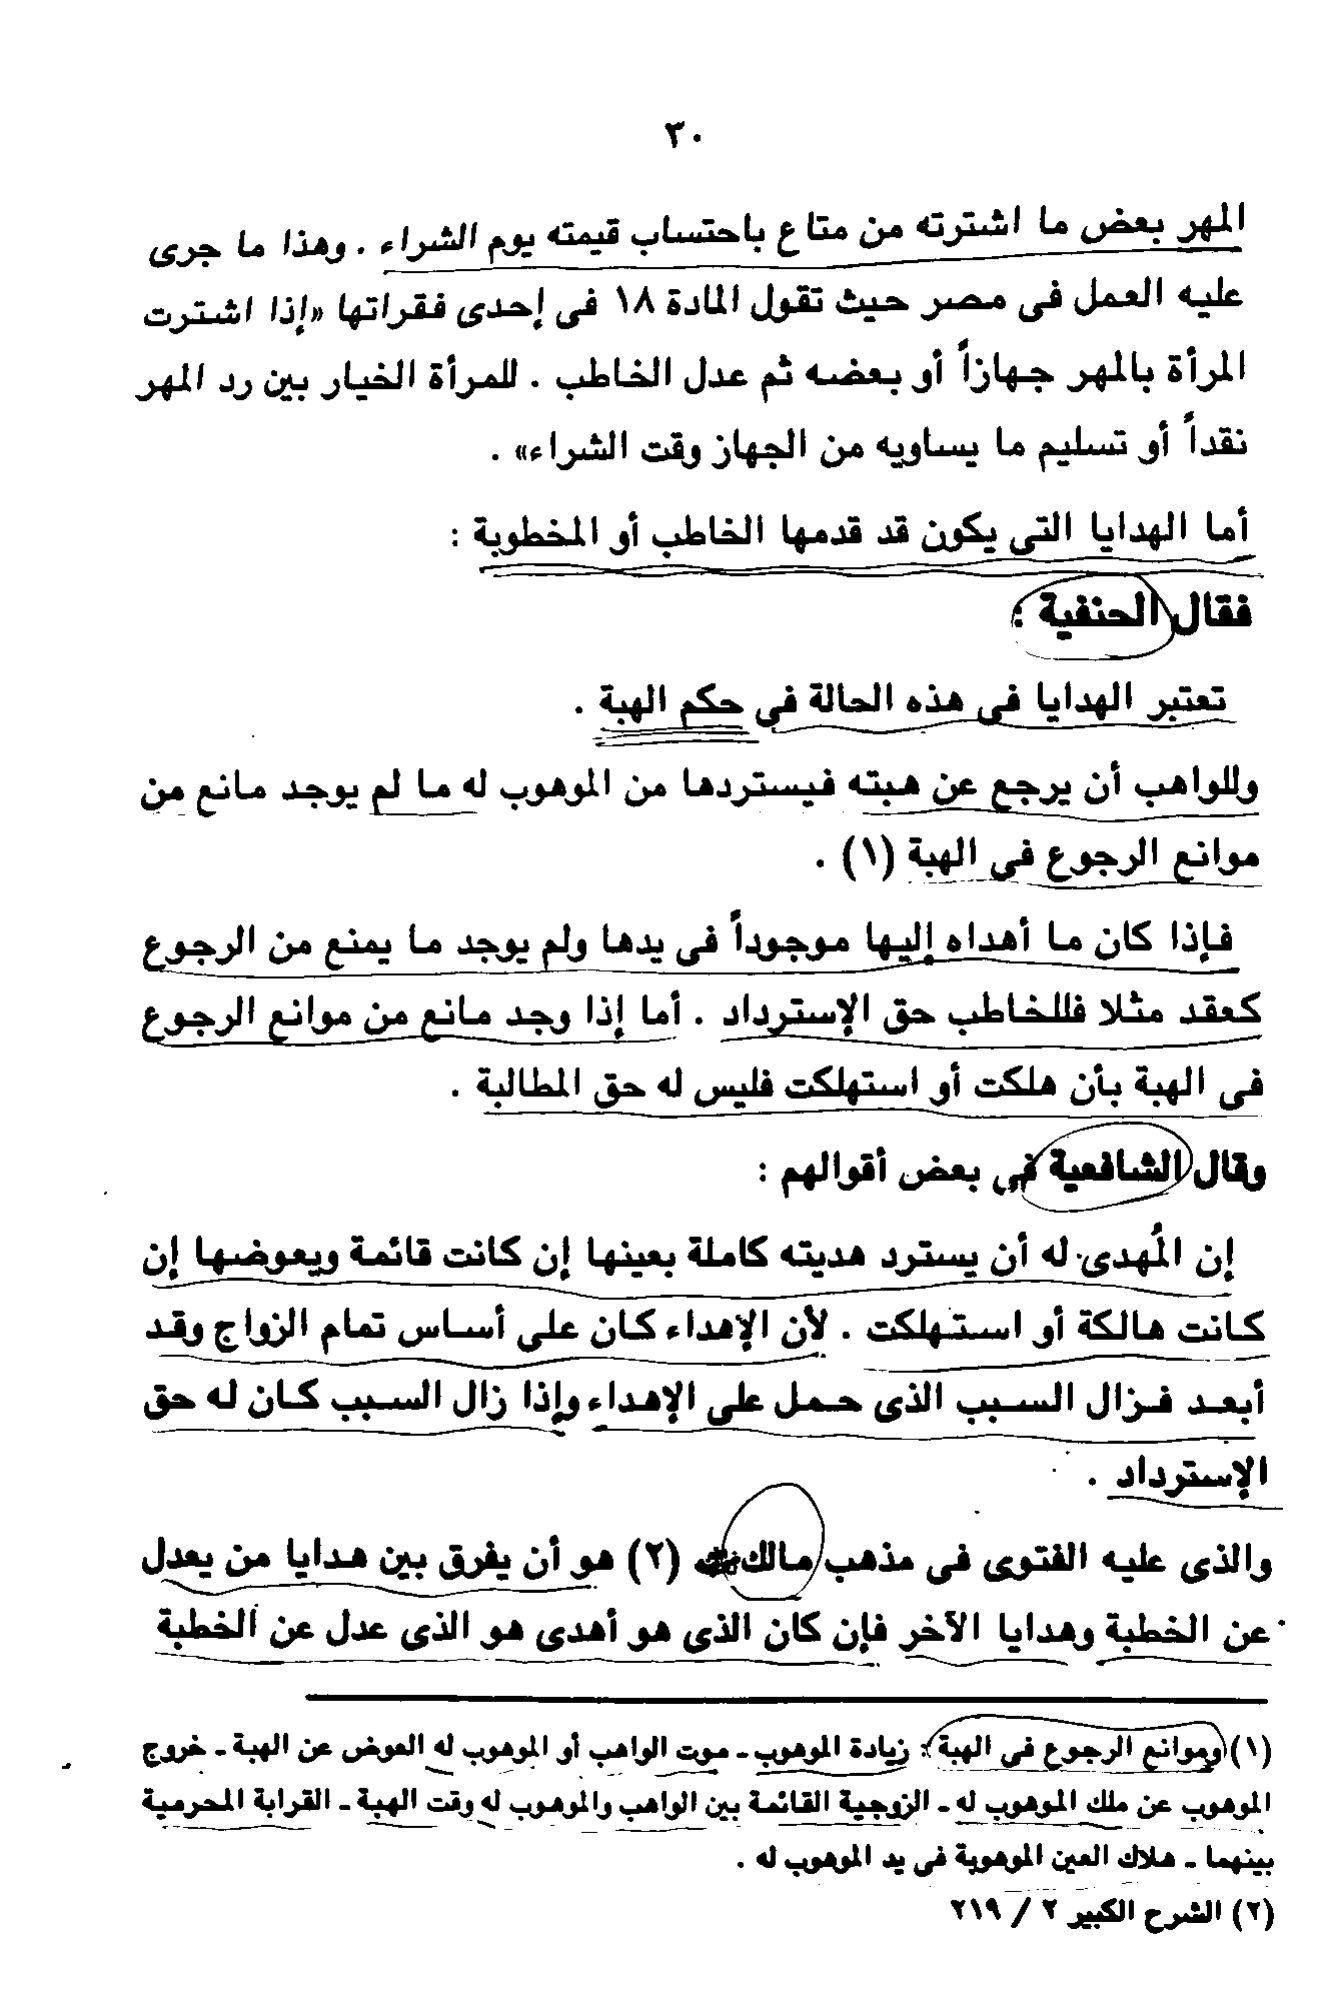 ٣٠
المهر بعض ما اشترته من متاع باحتساب قيمته يوم الشراء . وهذا ما جرى
عليه العمل فى مصر حيث تقول المادة ١٨ فى إحدى فقراتها «إذا اشترت
المرأة بالمهر جهازاً أو بعضه ثم عدل الخاطب . للمرأة الخيار بين رد المهر
نقداً أو تسليم ما يساويه من الجهاز وقت الشراء» .
أما الهدايا التى يكون قد قدمها الخاطب أو المخطوبة :
فقال الحنفية :
تعتبر الهدايا فى هذه الحالة فى حكم الهبة .
وللواهب أن يرجع عن هبته فيستردها من الموهوب له ما لم يوجد مانع من
موانع الرجوع فى الهبة (١) .
فإذا كان ما أهداه إليها موجوداً فى يدها ولم يوجد ما يمنع من الرجوع
كعقد مثلا فللخاطب حق الإسترداد . أما إذا وجد مانع من موانع الرجوع
فى الهبة بأن هلكت أو استهلكت فليس له حق المطالبة .
وقال الشافعية فى بعض أقوالهم :
إن المُهدى له أن يسترد هديته كاملة بعينها إن كانت قائمة ويعوضها إن
كانت هالكة أو استهلكت . لأن الإهداء كان على أساس تمام الزواج وقد
أبعد فزال السبب الذى حمل على الإهداء وإذا زال السبب كان له حق
الإسترداد .
والذى عليه الفتوى فى مذهب مالك (٢) هو أن يفرق بين هدايا من يعدل
عن الخطبة وهدايا الآخر فإن كان الذى هو أهدى هو الذى عدل عن الخطبة
(١) وموانع الرجوع فى الهبة : زيادة الموهوب ـ موت الواهب أو الموهوب له العوض عن الهبة ـ خروج
الموهوب عن ملك الموهوب له ـ الزوجية القائمة بين الواهب والموهوب له وقت الهبة ـ القرابة المحرمية
بينهما ـ هلاك العين الموهوبة فى يد الموهوب له .
(٢) الشرح الكبير ٢ / ٢١٩